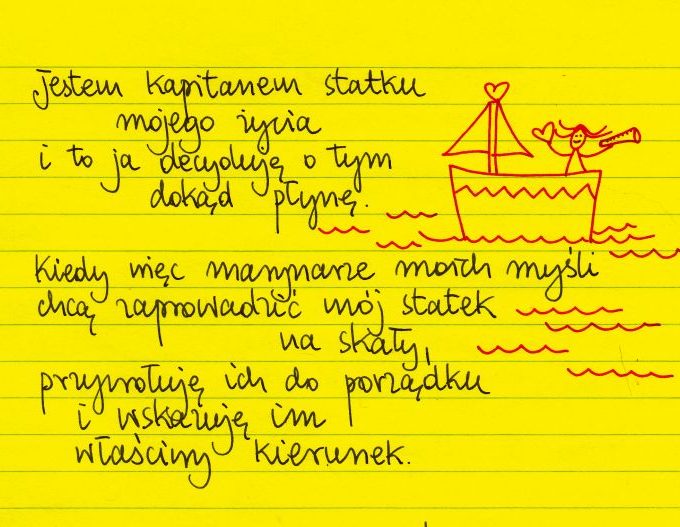 Jestem kapitanem statku
mojego życia
i to ja decyduję o tym
dokąd płynę.
Kiedy więc marynarze moich myśli
chcą zaprowadzić mój statek
na skały,
przywołuję ich do porządku
i wskazuję im
właściwy kierunek.